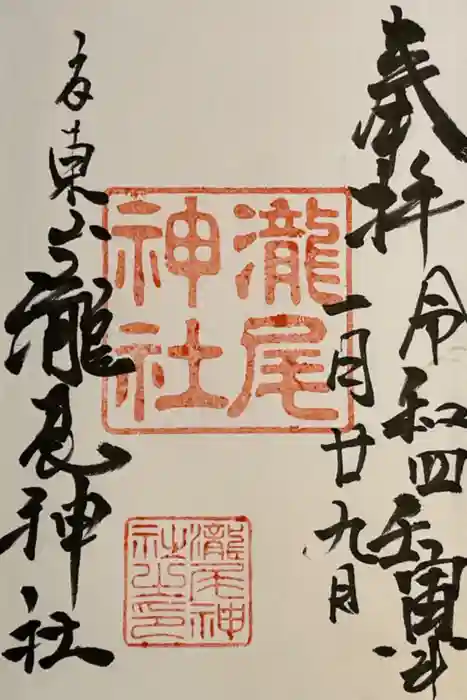 奉拝 令和四壬寅年
一月廿九日
瀧尾
神社
瀧尾神
社之印
京東山瀧尾神社